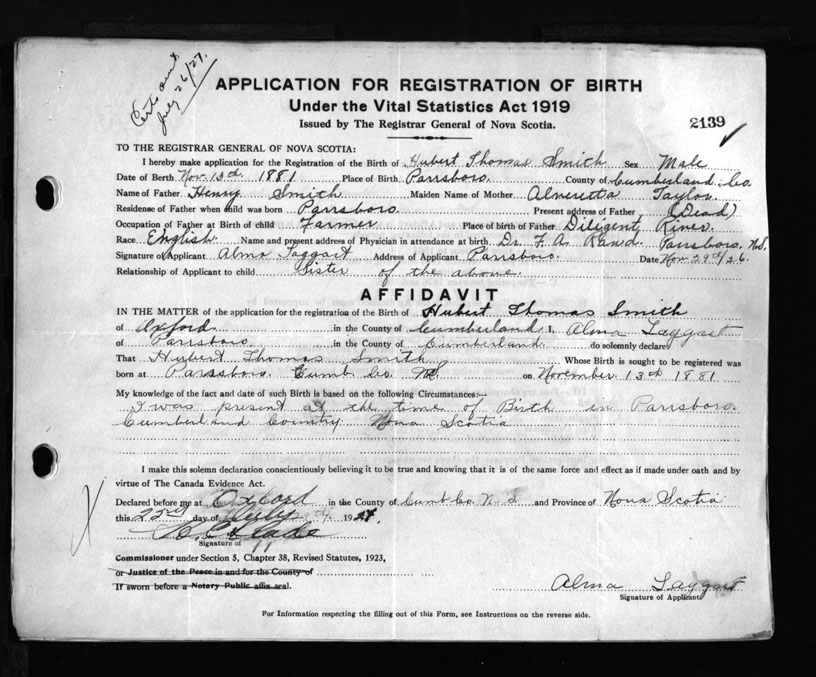 Certs sent
July 26/27.
APPLICATION FOR REGISTRATION OF BIRTH
Under the Vital Statistics Act 1919
Issued by The Registrar General of Nova Scotia.
2139
TO THE REGISTRAR GENERAL OF NOVA SCOTIA:
I hereby make application for the Registration of the Birth of Hubert Thomas Smith Sex Male
Date of Birth Nov. 13th 1881 Place of Birth Parrsboro. County of Cumberland Co.
Name of Father Henry Smith Maiden Name of Mother Alveretta Taylor.
Residense of Father when child was born Parrsboro. Present address of Father (Dead)
Occupation of Father at Birth of child Farmer Place of birth of Father Diligent River.
Race English. Name and present address of Physician in attendance at birth. Dr. F. A. Rand. Parrsboro, N.S.
Signature of Applicant Alma Taggart Address of Applicant Parrsboro. Date Nov. 29th/26.
Relationship of Applicant to child Sister of the above.
AFFIDAVIT
IN THE MATTER of the application for the registration of the Birth of Hubert Thomas Smith
of Oxford in the County of Cumberland I, Alma Taggart
of Parrsboro. in the County of Cumberland. do solemnly declare
That Hubert Thomas Smith Whose Birth is sought to be registered was
born at Parrsboro. Cumb Co. N.S. on November 13th 1881
My knowledge of the fact and date of such Birth is based on the following Circumstances:—
I was present at the time of Birth in Parrsboro.
Cumberland Country Nova Scotia
I make this solemn declaration conscientiously believing it to be true and knowing that it is of the same force and effect as if made under oath and by
virtue of The Canada Evidence Act.
Declared before me at Oxford in the County of Cumb Co. N.S and Province of Nova Scotia
this 22nd day of July 1927.
Slade
Signature of
Commissioner under Section 5, Chapter 38, Revised Statutes, 1923,
or Justice of the Peace in and for the County of
If sworn before a Notary Public affix seal.
Alma Taggart
Signature of Applicant
For Information respecting the filling out of this Form, see Instructions on the reverse side.